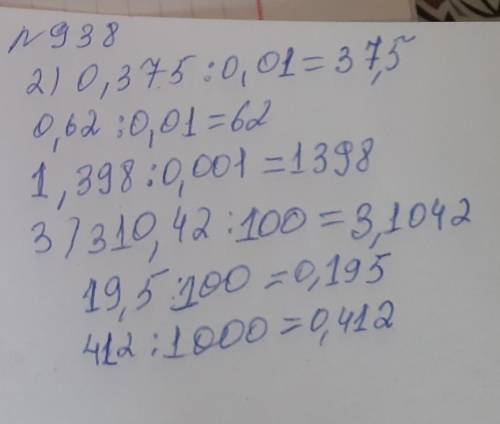 №938
2) 0,375:0,01=37,5
0,62:0,01=62
1,398:0,001=1398
3) 310,42:100=3,1042
19,5:100=0,195
412:1000=0,412